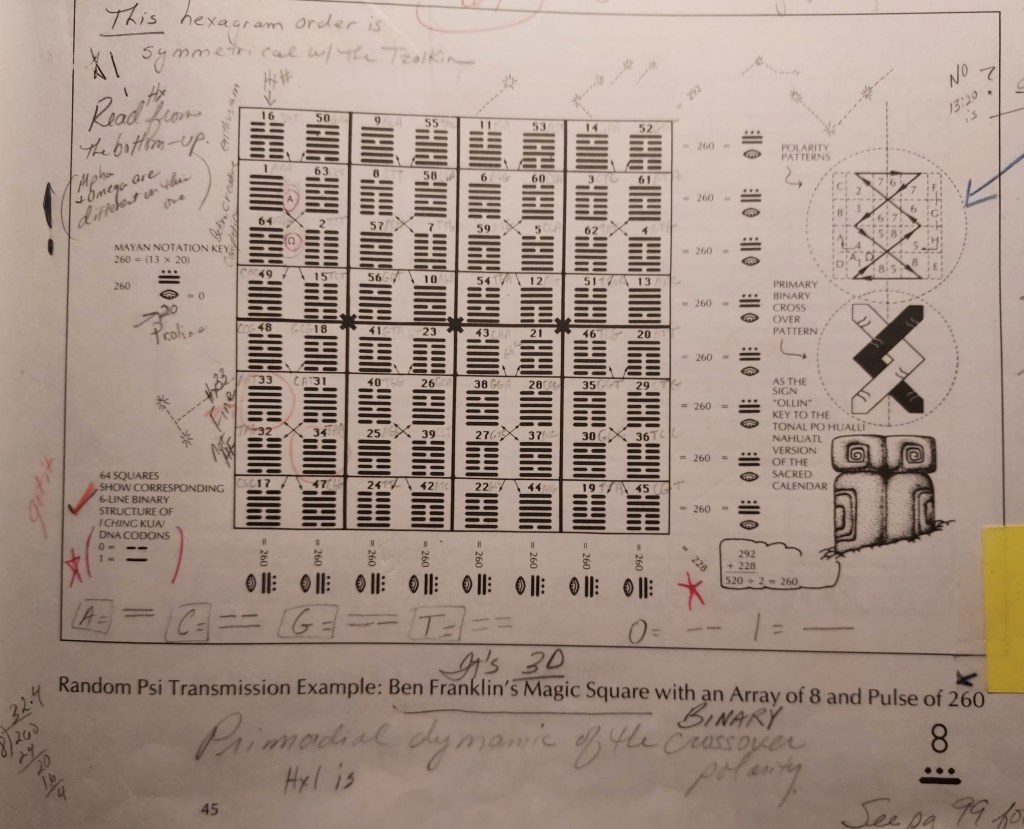 This hexagram order is
symmetrical w/ the Tzolkin
Hx#
Hx
Read from
the bottom-up.
Alpha
+ Omega are
different on this
one
!
NO ?
13:20
is
= 292
16 50 9 55 11 53 14 52
= 260
1 63 8 58 6 60 3 61
A
= 260
64 2 57 7 59 5 62 4
Ω
= 260
49 15 56 10 54 12 51 13
= 260
48 18 41 23 43 21 46 20
= 260
33 31 40 26 38 28 35 29
= 260
32 34 25 39 27 37 30 36
= 260
17 47 24 42 22 44 19 45
= 260
= 260 = 260 = 260 = 260 = 260 = 260 = 260 = 260
= 228
MAYAN NOTATION KEY
260 = (13 × 20)
260
= 0
20
Proline
Hx33
Fine
get it
64 SQUARES
SHOW CORRESPONDING
6-LINE BINARY
STRUCTURE OF
I CHING KUA/
DNA CODONS
0 =
1 =
POLARITY
PATTERNS
PRIMARY
BINARY
CROSS
OVER
PATTERN
AS THE
SIGN
"OLLIN"
KEY TO THE
TONAL PO HUALLI
NAHUATL
VERSION
OF THE
SACRED
CALENDAR
292
+ 228
520 ÷ 2 = 260
A= C= G= T= 0= -- 1= —
It's 3D
Random Psi Transmission Example: Ben Franklin's Magic Square with an Array of 8 and Pulse of 260
BINARY
Primodial dynamic of the Crossover
polarity
Hx1 is
8
32.4
8)260
24
20
16
4
45
See pg 99 for